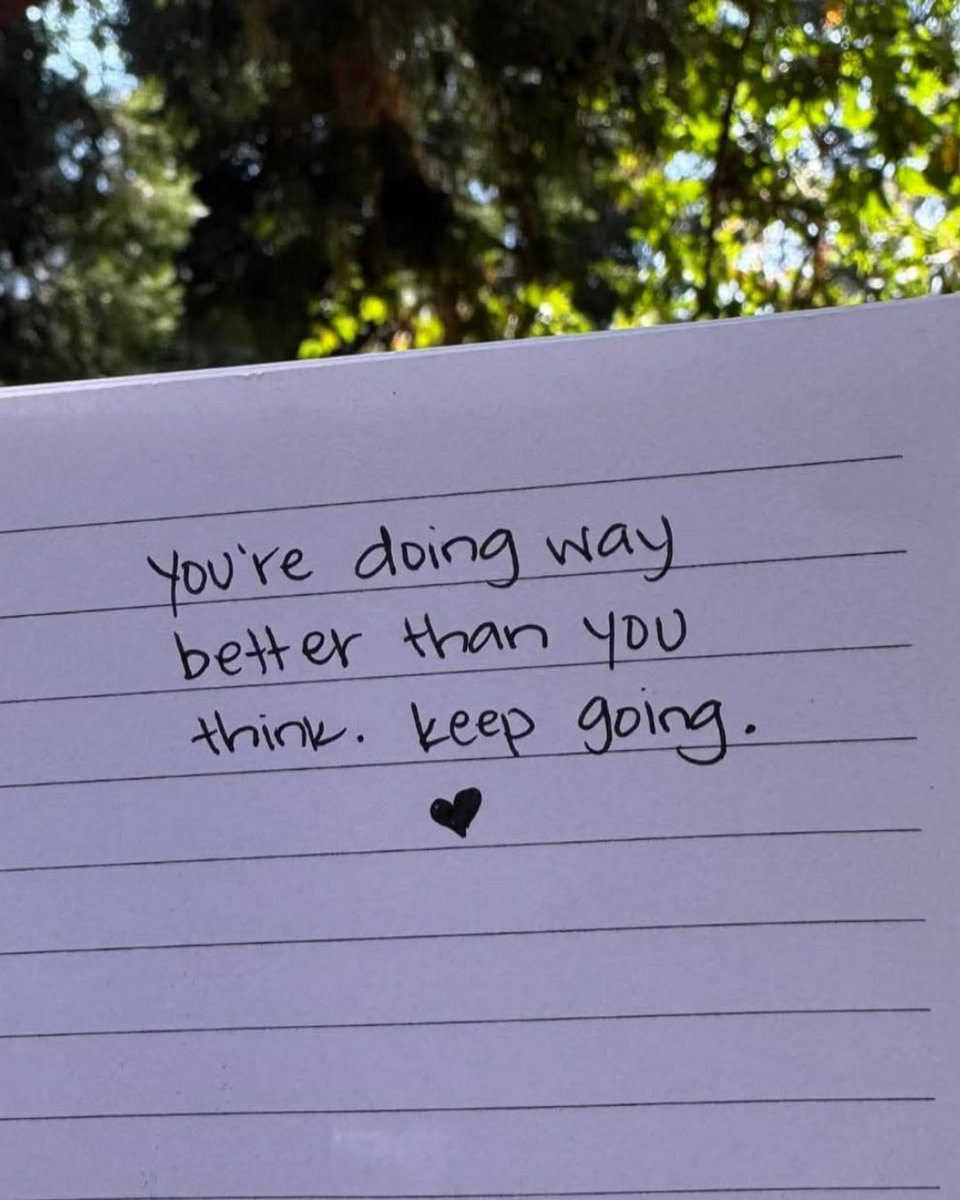 you're doing way
better than you
think. keep going.